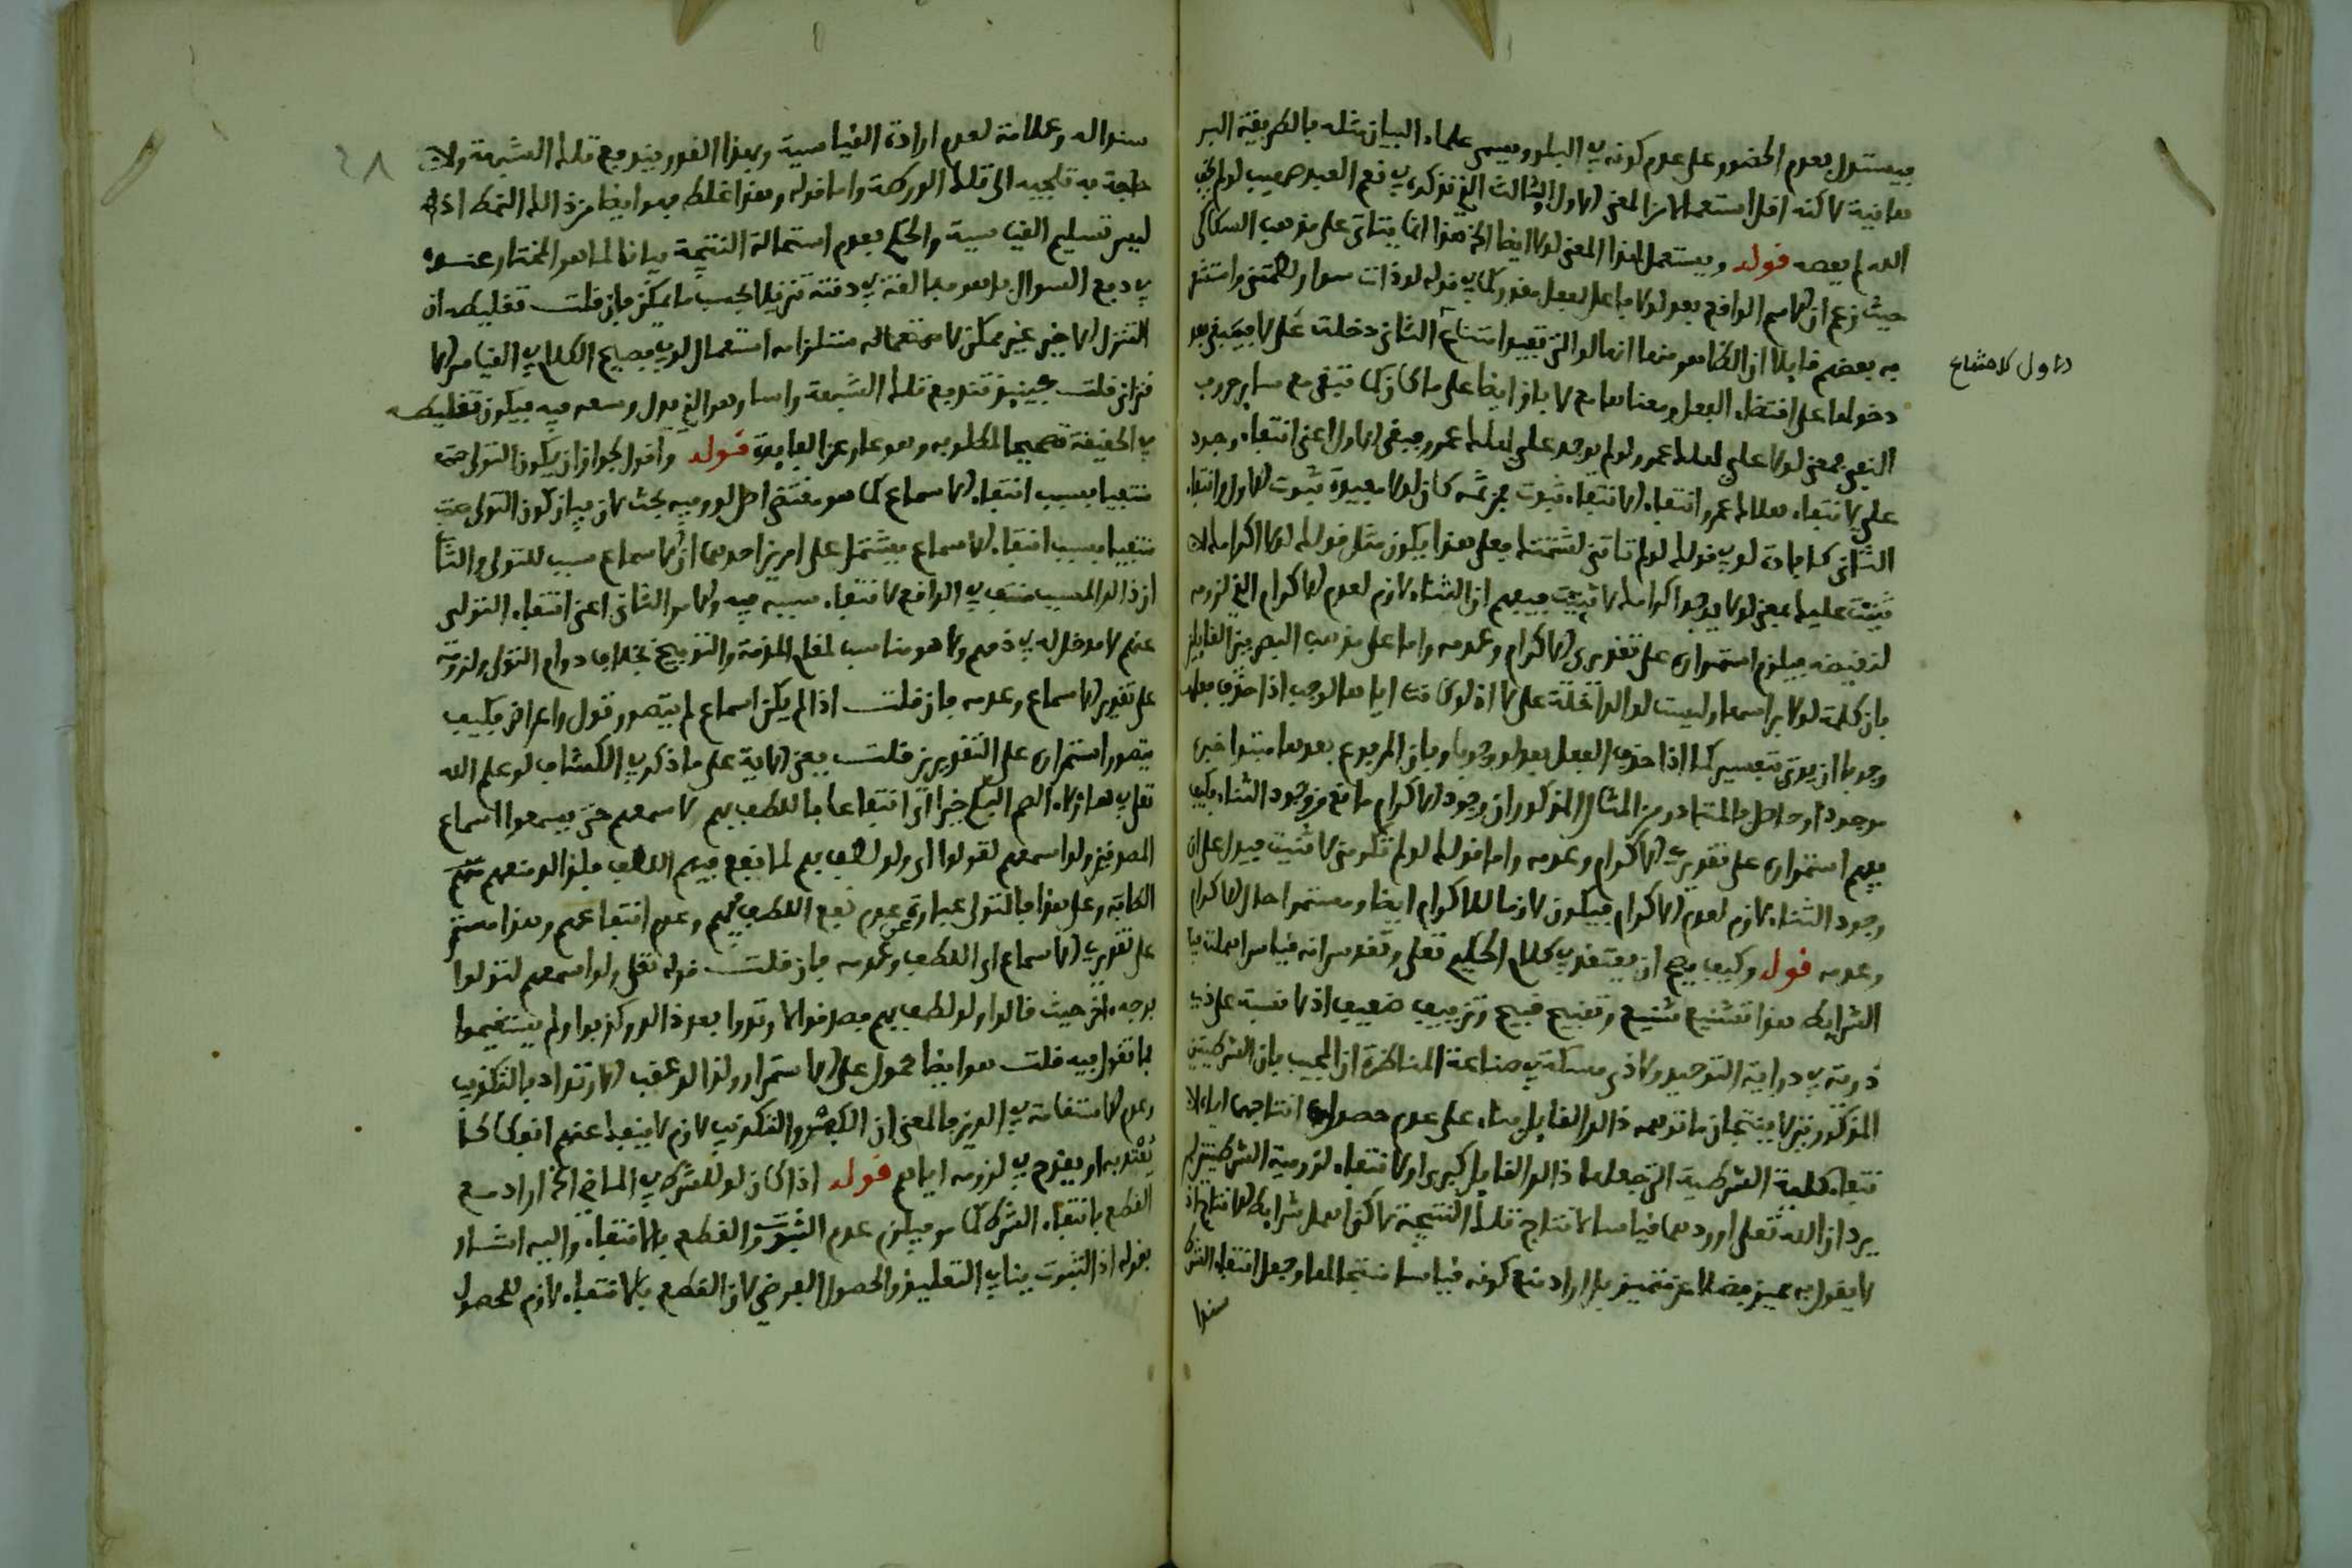 فيستدل بعدم الحضور على عدم كونه في البلد ويسمي علماء البيان مثله بالطريقة البر
هانية لاكنه اقل استعمالا من المعنى الاول والثالث الذي تذكره في نعم العبد صهيب لو لم يخف
الله لم يعصه قوله ويستعمل لهذا المعنى لولا ايضا الخ هذا انما يتاتى على مذهب السكاكي
حيث زعم ان الاسم الواقع بعد لولا فاعل بفعل مقدر كما في قوله لو ذات سوار لطمتني واستقر
به بعضهم قايلا ان الظاهر منها انها لو التي تفيد امتناع الثاني دخلت على لا فيبقى بعد
الاول لامتناع
دخولها على اقتضاء الفعل ومعناها مع لا باق ايضا على ما كان كما تبقى مع ساير حروب
النفي فمعنى لولا علي لهلك عمر لو لم يوجد علي لهلك عمر ويبقى الاول اعني انتفاء وجود
علي لانتفاء هلاك عمر وانتفاء الانتفاء ثبوت فمن ثمه كان لولا مفيدة ثبوت الاول وانتفاء
الثاني كافادة لو في قولك لو لم تاتني لشتمتك فعلى هذا يكون مثل قولك لولا اكرامك لا
ثنيت عليك بمعنى لو لا يوجد اكرامك لاثنيت فيفهم ان الثناء لازم لعدم الاكرام الذي لزومه
لنقيضه فيلزم استمراره على تقديري الاكرام وعدمه واما على مذهب البصريين القايلين
بان كلمة لولا براسها وليست لو الداخلة على لا اذ لو كانت اياها لوجب اذا حذف فعلها
وجوبا ان يوتى بتفسير كما اذا حذف الفعل بعد لو وجوبا وبان المرفوع بعدها مبتدا خبره
موجود او حاصل فالمتبادر من المثال المذكور ان وجود الاكرام مانع من وجود الثناء فكيف
يفهم استمراره على تقديري الاكرام وعدمه واما قولك لو لم تكرمني لاثنيت فيدل على ان
وجود الثناء لازم لعدم الاكرام فيكون لازما للاكرام ايضا ومستمرا حال الاكرام
وعدمه قوله وكيف يصح ان يعتقد في كلام الحكيم تعلى وتقدس انه قياس اهملت فيه
الشرايط هذا تشنيع شنيع وتقبيح قبيح وتزييف ضعيف اذ لا نسبة على ذي
دربة في دراية التوحيد ولا ذي مسكة في صناعة المناظرة ان المجيب بان الشرطيتين
المذكورتين لا ينتجان ما توهمه ذالك القايل بناء على عدم حصول انتاجهما اياه لا
نتفاء كلية الشرطية التي جعلها ذالك القايل كبرى او لانتفاء لزومية الشرطيتين لم
يرد ان الله تعلى اوردهما قياسا لانتاج تلك النتيجة لاكن اهمل شرايط الانتاج اذ
لا يقول به مميز فضلا عن متميز بل اراد منع كونه قياسا منتجا لها وجعل انتفاء الشر
سندا
٢٨
سنداله وعلامة لعدم ارادة القياسية وبهذا القدر يندفع تلك الشبهة ولا
حاجة به تلجيه الى تلك الورطة واما قوله وهذا غلط فهو ايضا من ذالك النمط اذ
ليس تسليم القياسية والحكم بعدم استحالة النتيجة بيانا لما هو المختار عنده
في دفع السوال بل هو مبالغة في دفعه تنزيلا بحسب ما يمكن فان قلت تغليطه ان
التنزل الاخير غير ممكن لاستعماله مستلزامه استعمال لو في فصيح الكلام في القياس الا
قتراني قلت حينيذ تندفع تلك الشبهة راسا وهو الذي بذل وسعه فيه فيكون تغليطه
في الحقيقة تصحيحا لمطلوبه وهو عار عن الفايدة قوله واقول يجوز ان يكون التولي حت
منتفيا بسبب انتفاء الاسماع كما هو مقتضى اصل لو وفيه بحث لان بيان كون التولي حت
منتفيا بسبب انتفاء الاسماع يشتمل على امرين احدهما ان الاسماع سبب للتولي والثا
ان ذالك المسبب منتف في الواقع لانتفاء سببه فيه والامر الثاني اعني انتفاء التولي
عنهم لا مدخل له في ذمهم ولا هو مناسب لمقام المذمة والتوبيخ بخلاف دوام التولي ولزومه
على تقدير الاسماع وعدمه فان قلت اذا لم يكن اسماع لم يتصور تول واعراض فكيف
يتصور استمراره على التقديرين قلت معنى الاية على ما ذكر في الكشاف لو علم الله
تعلى في هاولاء الصم البكم خيرا اي انتفاعا باللطف بهم لاسمعهم حتى يسمعوا سماع
المصدقين ولو اسمعهم لتولوا اي ولو لطف بهم لما نفع فيهم اللطف فلذالك منعهم منهم
الطافه وعلى هذا فالتولي عبارة عن عدم نفع اللطف فيهم وعدم انتفاعهم وهذا مستمر
على تقديري الاسماع اي اللطف وعدمه فان قلت قوله تعلى ولو اسمعهم لتولوا
بوجه اخر حيث قالوا ولو لطف بهم فصدقوا لارتدوا بعد ذالك وكذبوا ولم يستقيموا
فما تقول فيه قلت هو ايضا محمول على الاستمرار ولذالك عقب الارتداد بالتكذيب
وعدم الاستقامة في الدين فالمعنى ان الكفر والتكذيب لازم لا ينفك عنهم انفكاكا
يعتد به او يقدح في لزومه اياهم قوله اذا كان لو للشرط في الماضي الخ اراد مع
القطع بانتفاء الشرط كما مر فيلزم عدم الثبوت والقطع بالانتفاء واليه اشار
بقوله اذ الثبوت ينافي التعليق والحصول الفرضي لان القطع بالانتفاء لازم للحصول